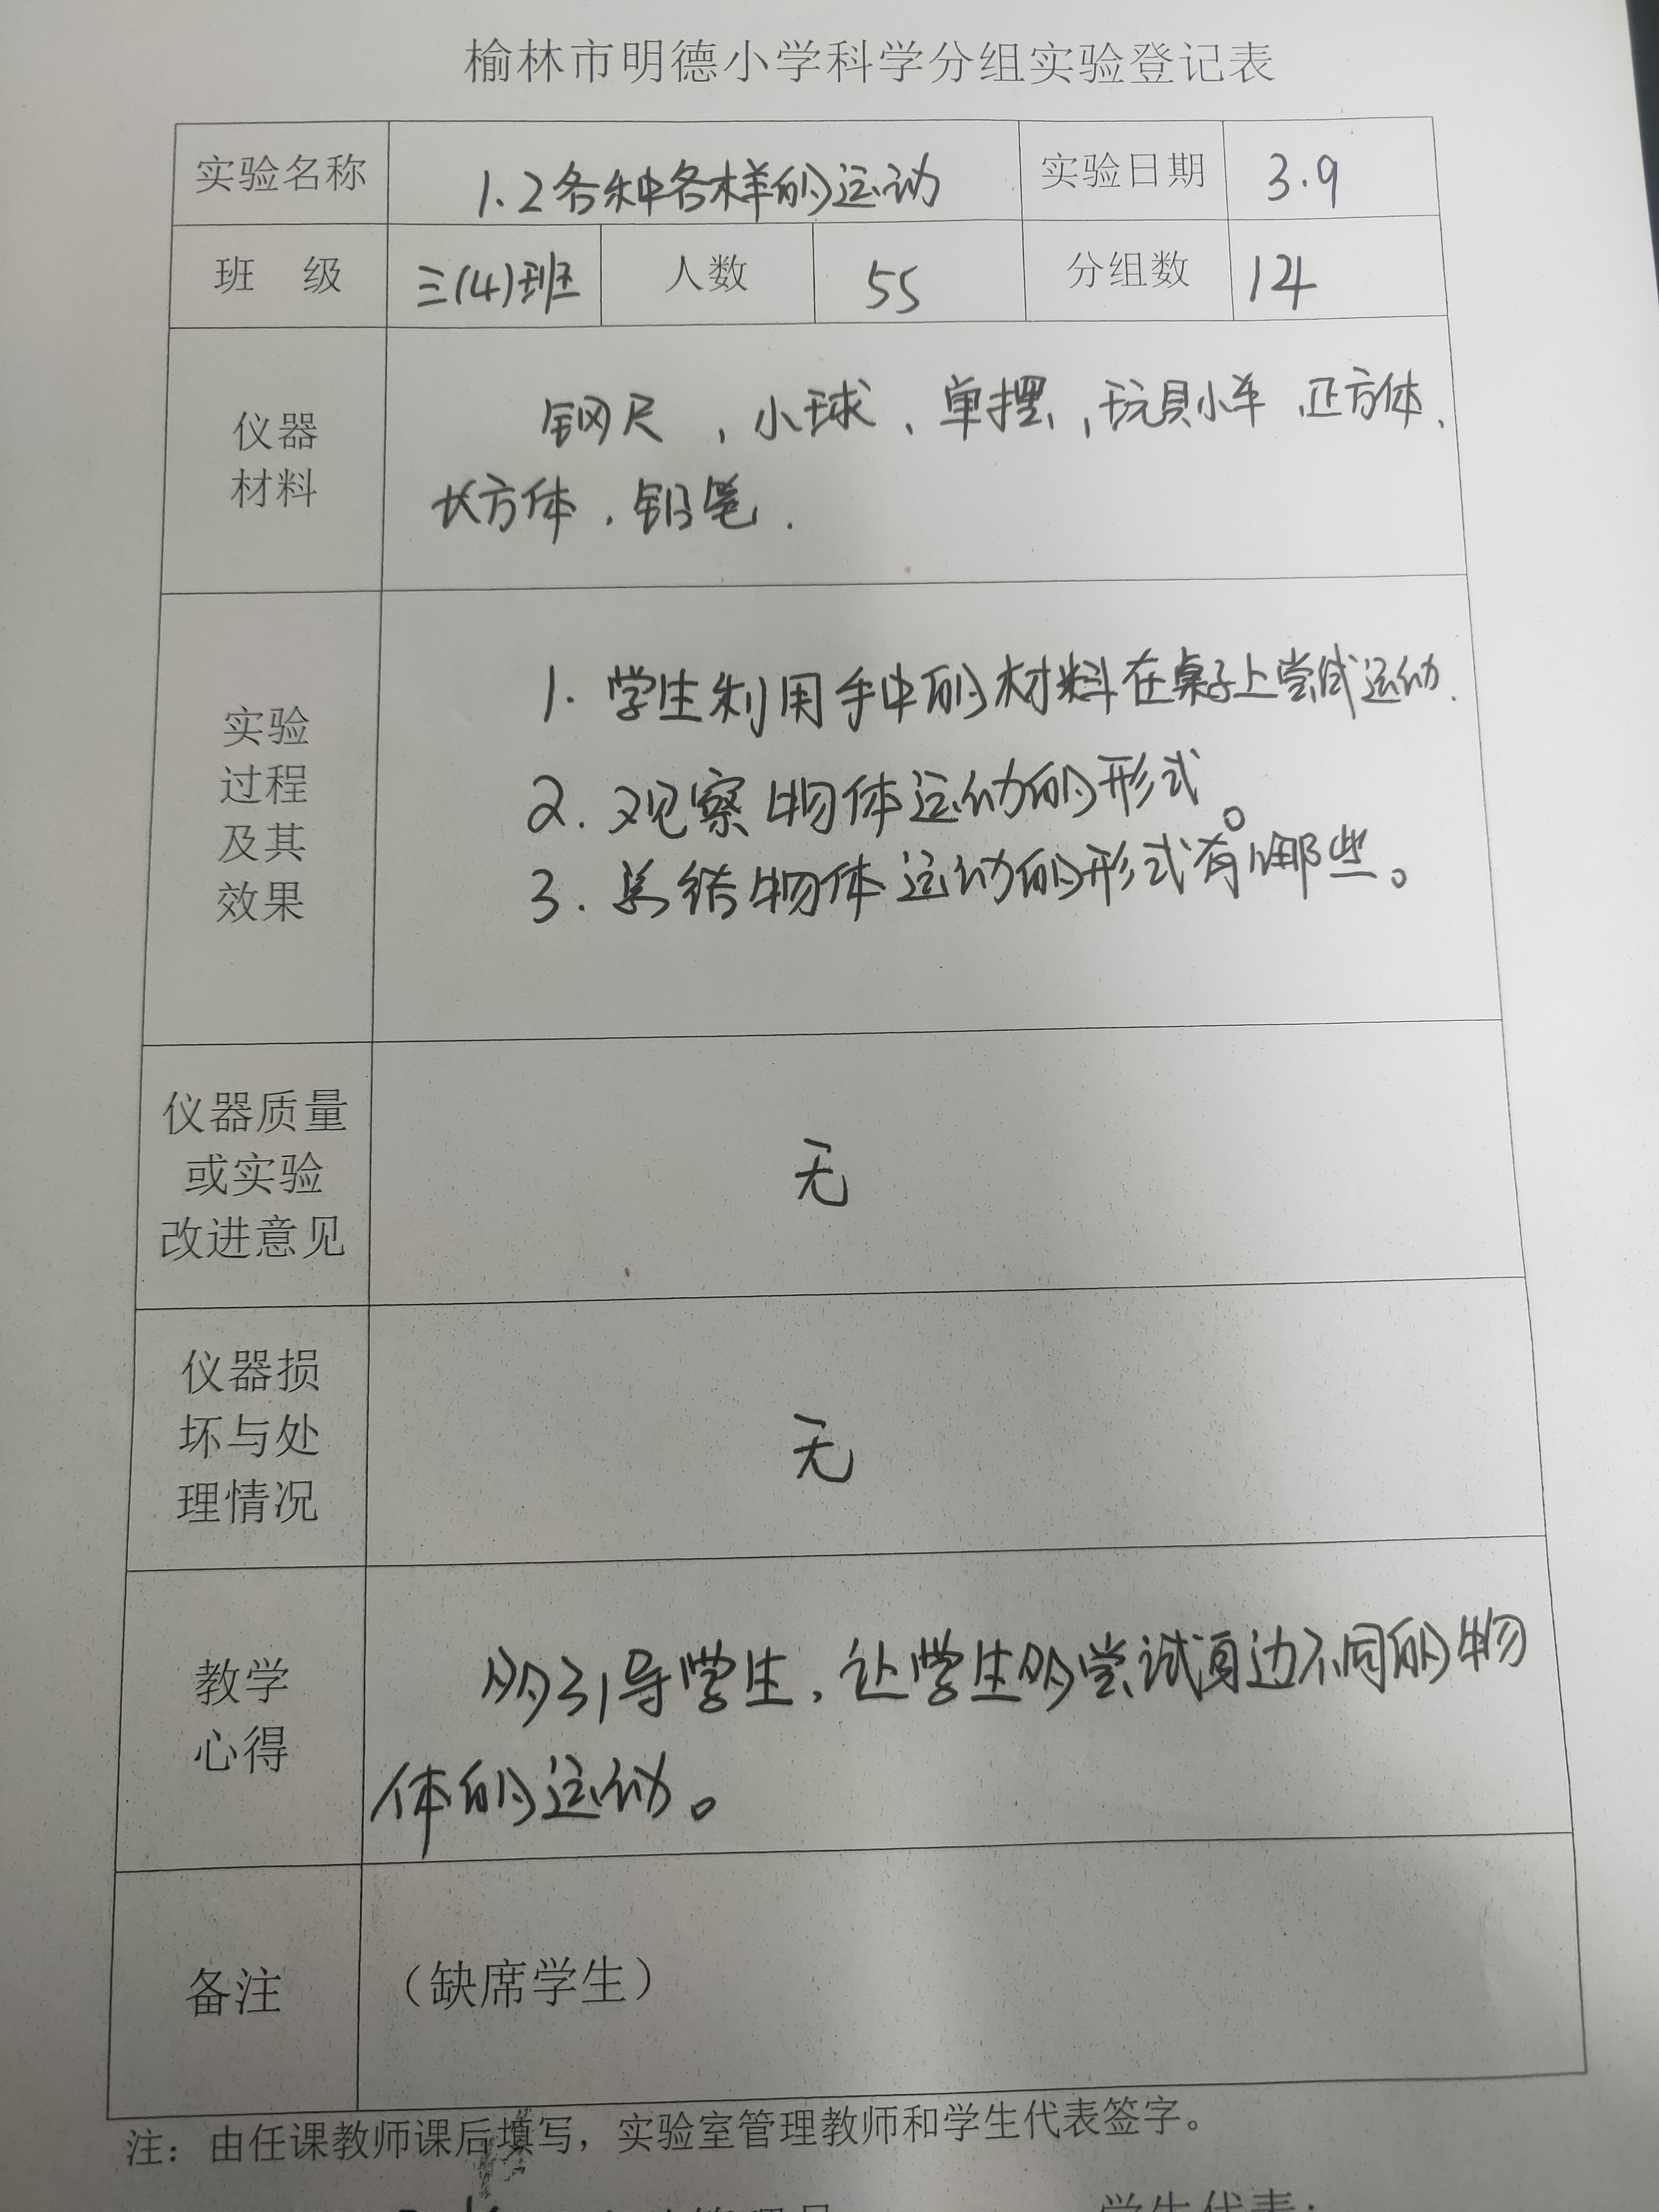 榆林市明德小学科学分组实验登记表
实验名称 1.2各种各样的运动 实验日期 3.9
班 级 三(4)班 人数 55 分组数 14
仪器
材料
钢尺、小球、单摆、玩具小车、正方体、
长方体、铅笔.
实验
过程
及其
效果
1. 学生利用手中的材料在桌子上尝试运动.
2. 观察物体运动的形式。
3. 总结物体运动的形式有哪些。
仪器质量
或实验
改进意见
无
仪器损
坏与处
理情况
无
教学
心得
多引导学生,让学生多尝试身边不同的物
体的运动。
备注
（缺席学生）
注：由任课教师课后填写，实验室管理教师和学生代表签字。
学生代表：